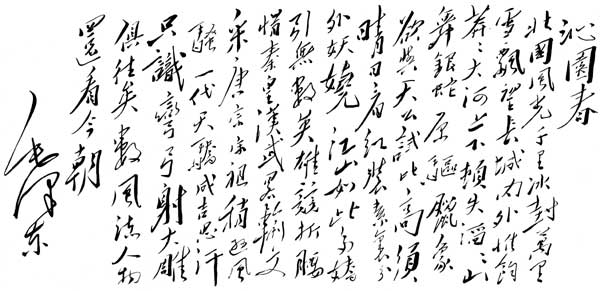 沁園春
北國風光千里冰封萬里
雪飄望長城內外惟餘
莽〻大河上下頓失滔〻山
舞銀蛇原驅臘象
欲與天公試比高須
晴日看紅裝素裹分
外妖嬈 江山如此多嬌
引無數英雄競折腰
惜秦皇漢武畧輸文
采唐宗宋祖稍遜風
騷一代天驕成吉思汗
只識彎弓射大雕
俱往矣數風流人物
還看今朝
毛澤東